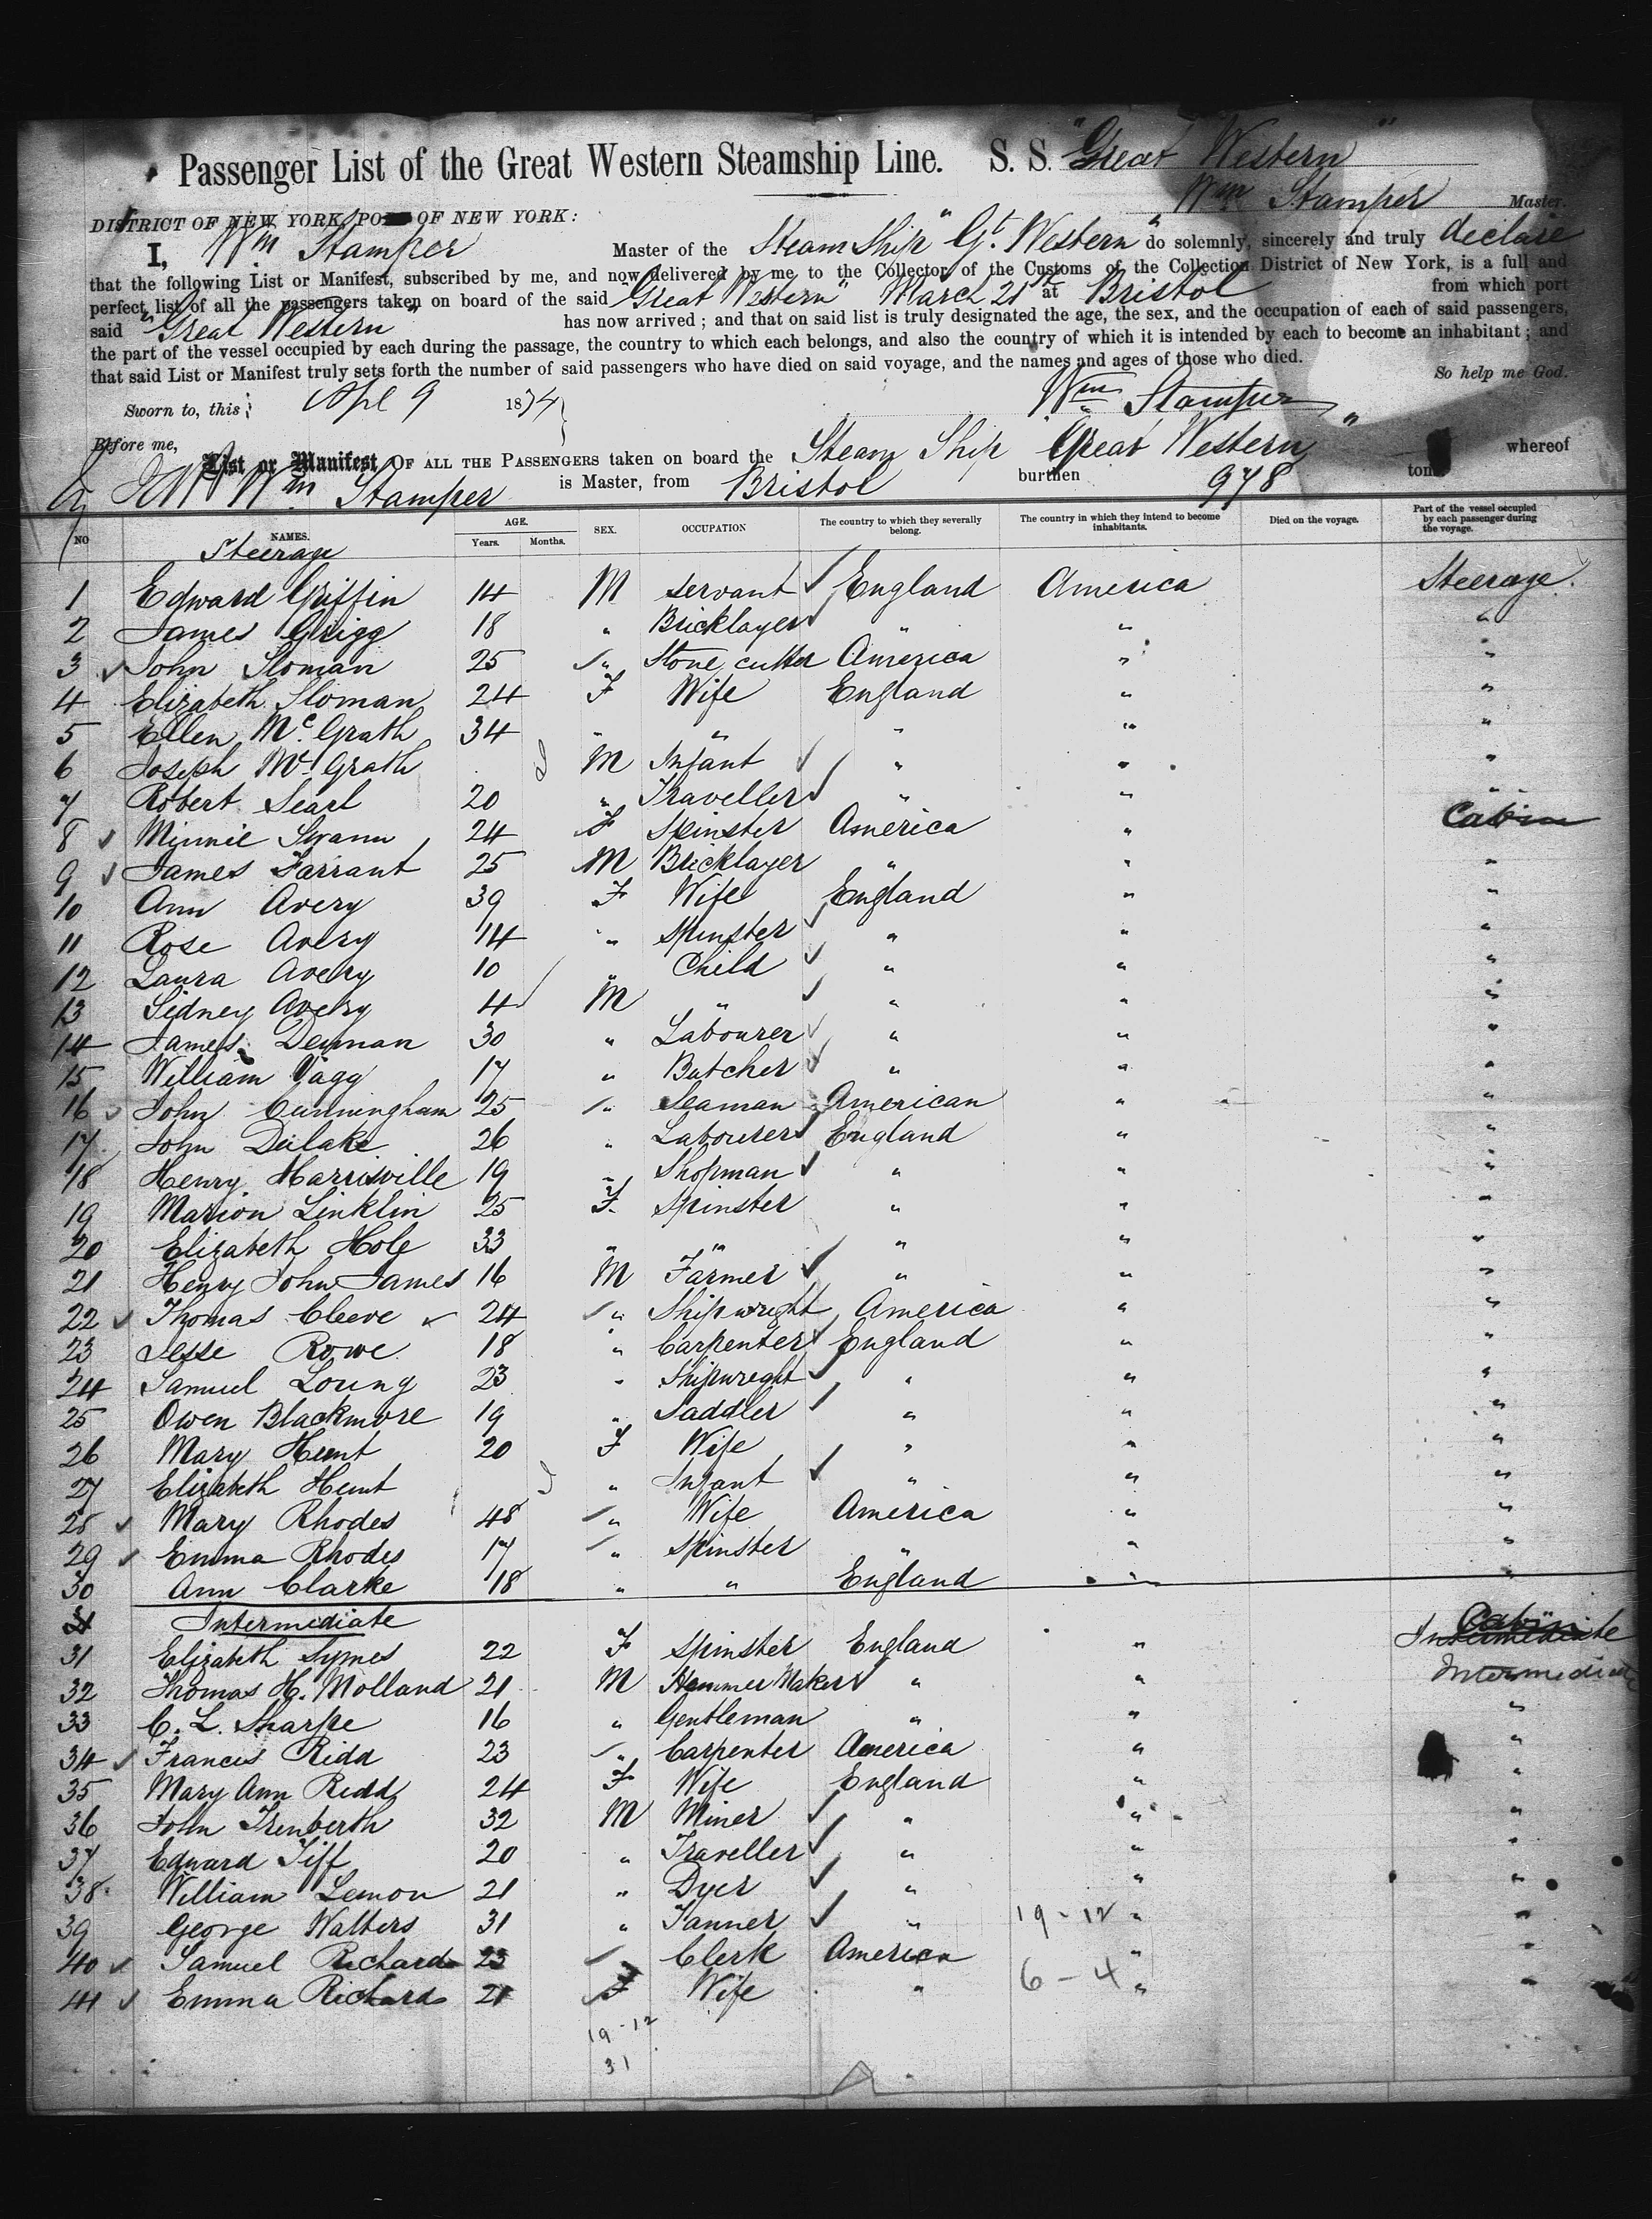 Passenger List of the Great Western Steamship Line. S. S. "Great Western"
Wm Stamper Master.
DISTRICT OF NEW YORK, PORT OF NEW YORK:
I, Wm Stamper Master of the Steam Ship "Gt. Western" do solemnly, sincerely and truly declare
that the following List or Manifest, subscribed by me, and now delivered by me to the Collector of the Customs of the Collection District of New York, is a full and
perfect list of all the passengers taken on board of the said "Great Western" March 21st at Bristol from which port
said "Great Western" has now arrived; and that on said list is truly designated the age, the sex, and the occupation of each of said passengers,
the part of the vessel occupied by each during the passage, the country to which each belongs, and also the country of which it is intended by each to become an inhabitant; and
that said List or Manifest truly sets forth the number of said passengers who have died on said voyage, and the names and ages of those who died.
So help me God.
Sworn to, this Apl 9 1874
Wm Stamper
Before me,
List or Manifest OF ALL THE PASSENGERS taken on board the Steam Ship "Great Western" whereof
Wm Stamper is Master, from Bristol burthen 978 tons
NO NAMES. AGE. Years. Months. SEX. OCCUPATION The country to which they severally belong. The country in which they intend to become inhabitants. Died on the voyage. Part of the vessel occupied by each passenger during the voyage.
Steerage
1 Edward Griffin 14 M Servant England America Steerage
2 James Grigg 18 " Bricklayer " " "
3 John Sloman 25 " Stone cutter America " "
4 Elizabeth Sloman 24 F Wife England " "
5 Ellen Mc Grath 34 " " " " "
6 Joseph Mc Grath M Infant " " "
7 Robert Searl 20 " Traveller " " "
8 Minnie Swann 24 F Spinster America " Cabin
9 James Farrant 25 M Bricklayer " " "
10 Ann Avery 39 F Wife England " "
11 Rose Avery 14 " Spinster " " "
12 Laura Avery 10 " Child " " "
13 Sidney Avery 4 M " " " "
14 James Denman 30 " Labourer " " "
15 William Vagg 17 " Butcher " " "
16 John Cunningham 25 " Seaman American " "
17 John Dulake 26 " Labourer England " "
18 Henry Harrisville 19 " Shopman " " "
19 Marion Linklin 25 F Spinster " " "
20 Elizabeth Hole 33 " " " " "
21 Henry John James 16 M Farmer " " "
22 Thomas Cleeve 24 " Shipwright America " "
23 Jesse Rowe 18 " Carpenter England " "
24 Samuel Loung 23 " Shipwright " " "
25 Owen Blackmore 19 " Saddler " " "
26 Mary Hunt 20 F Wife " " "
27 Elizabeth Hunt " Infant " " "
28 Mary Rhodes 48 " Wife America " "
29 Emma Rhodes 17 " Spinster " " "
30 Ann Clarke 18 " " England " "
Intermediate
31 Elizabeth Symes 22 F Spinster England " Intermediate
32 Thomas H. Molland 21 M Hammer Maker " " Intermediate
33 C. L. Sharpe 16 " Gentleman " " "
34 Francis Ridd 23 " Carpenter America " "
35 Mary Ann Ridd 24 F Wife England " "
36 John Trenberth 32 M Miner " " "
37 Edward Tiff 20 " Traveller " " "
38 William Lemon 21 " Dyer " " "
39 George Walters 31 " Tanner " 19-12 " "
40 Samuel Richards 23 Clerk America " "
41 Emma Richards 21 F Wife " 6-4 " "
19-12
31